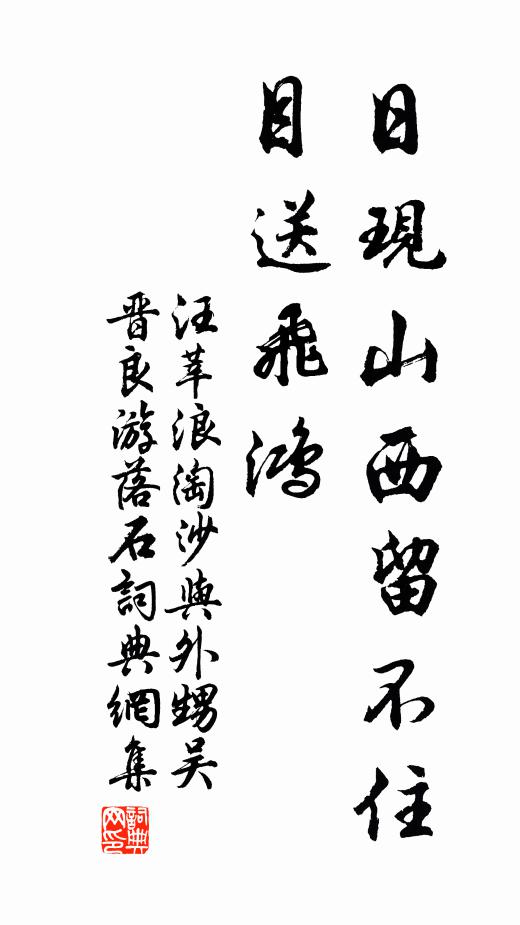 日現山西留不住
目送飛鴻
汪莘浪淘沙與外甥吴
晋良游落石詞典網集
詞典網印